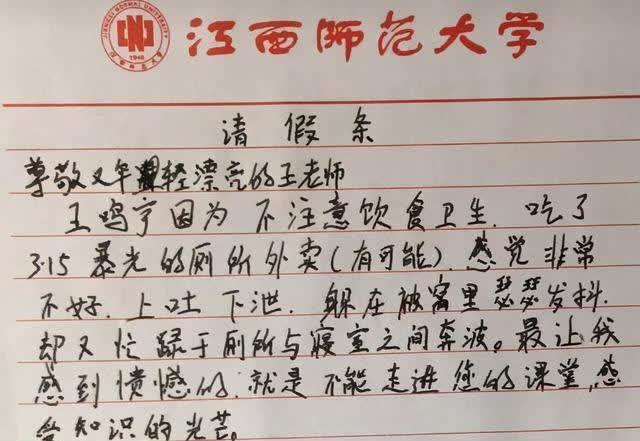 JIANGXI NORMAL UNIVERSITY
1940
江西师范大学
请假条
尊敬又年轻漂亮的王老师
王鸣亨因为不注意饮食卫生.吃了
3·15暴光的厕所外卖(有可能).感觉非常
不好.上吐下泄.躲在被窝里瑟瑟发抖.
却又忙于厕所与寝室之间奔波。最让我
感到愤憾的.就是不能走进您的课堂,感
受知识的光芒。